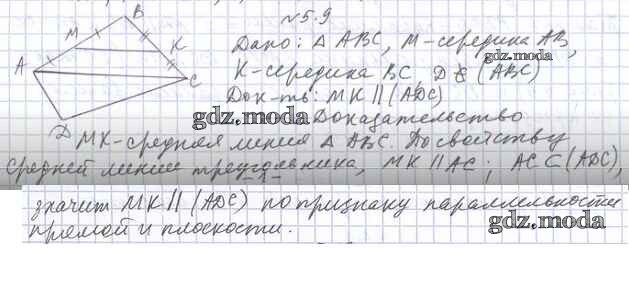 N5.9
B
M
K
A
C
D
Дано: Δ ABC, M-середина AB,
K-середина BC, D∉(ABC)
gdz.moda
Док-ть: MK || (ADC)
gdz.moda Доказательство
MK-средняя линия Δ ABC. По свойству
средней линии треугольника, MK || AC; AC⊂(ADC),
значит MK || (ADC) по признаку параллельности
прямой и плоскости.
gdz.moda